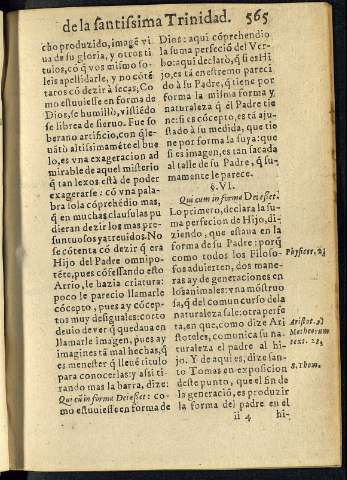 de la santissima Trinidad. 565
cho produzido, imagẽ vi
ua de su gloria, y otros ti
tulos, cõ q̃ vos mismo so
leis apellidarle, y no cõtẽ
taros cõ dezir à secas; Co
mo estuuiesse en forma de
Dios, se humillò, vistiẽdo
se librea de sieruo. Fue so
berano artificio, con q̃ le-
uãtò altissimamẽte el bue
lo, es vna exageracion ad
mirable de aquel misterio
q̃ tan lexos està de poder
exagerarse: cõ vna pala-
bra sola cõprehẽdio mas,
q̃ en muchas clausulas pu
dieran dezir los mas pre-
suntuosos y atreuidos. No
se cõtenta cõ dezir q̃ era
Hijo del Padre omnipo-
tẽte, pues cõfessando esto
Arrio, le hazia criatura:
poco le parecio llamarle
cõcepto, pues ay cõcep-
tos muy desiguales: corto
deuio de ver q̃ quedaua en
llamarle imagen, pues ay
imagines tã mal hechas, q̃
es menester q̃ llenẽ titulo
para conocerlas: y assi ti-
rando mas la barra, dize:
Qui cũ in forma Dei esset: co
mo estuuiesse en forma de
Dios: aqui cõprehendio
la suma perfeciõ del Ver-
bo: aqui declarò, q̃ si es Hi
jo, es tã en estremo pareci
do à su Padre, q̃ tiene por
forma la misma forma y
naturaleza q̃ el Padre tie
ne: si es cõcepto, està ajus
tado à su medida, que tie
ne por forma la suya: que
si es imagen, es tan sacada
al talle de su Padre, q̃ su-
mamente le parece.
§. VI.
Qui cum in forma Dei esset.
Lo primero, declara la su
ma perfecion de Hijo, di-
ziendo, que estaua en la
forma de su Padre: porq̃
como todos los Filoso-
fos aduierten, dos mane-
ras ay de generaciones en
los animales: vna mõstruo
sa, q̃ del comun curso de la
naturaleza sale: otra perfe
ta, en que, como dize Ari
stoteles, comunica su na-
turaleza el padre al hi-
jo. Y de aqui es, dize san-
to Tomas en exposicion
deste punto, que el fin de
la generaciõ, es produzir
la forma del padre en el
ii 4 hi-
Aristot. 4
S. Thom.